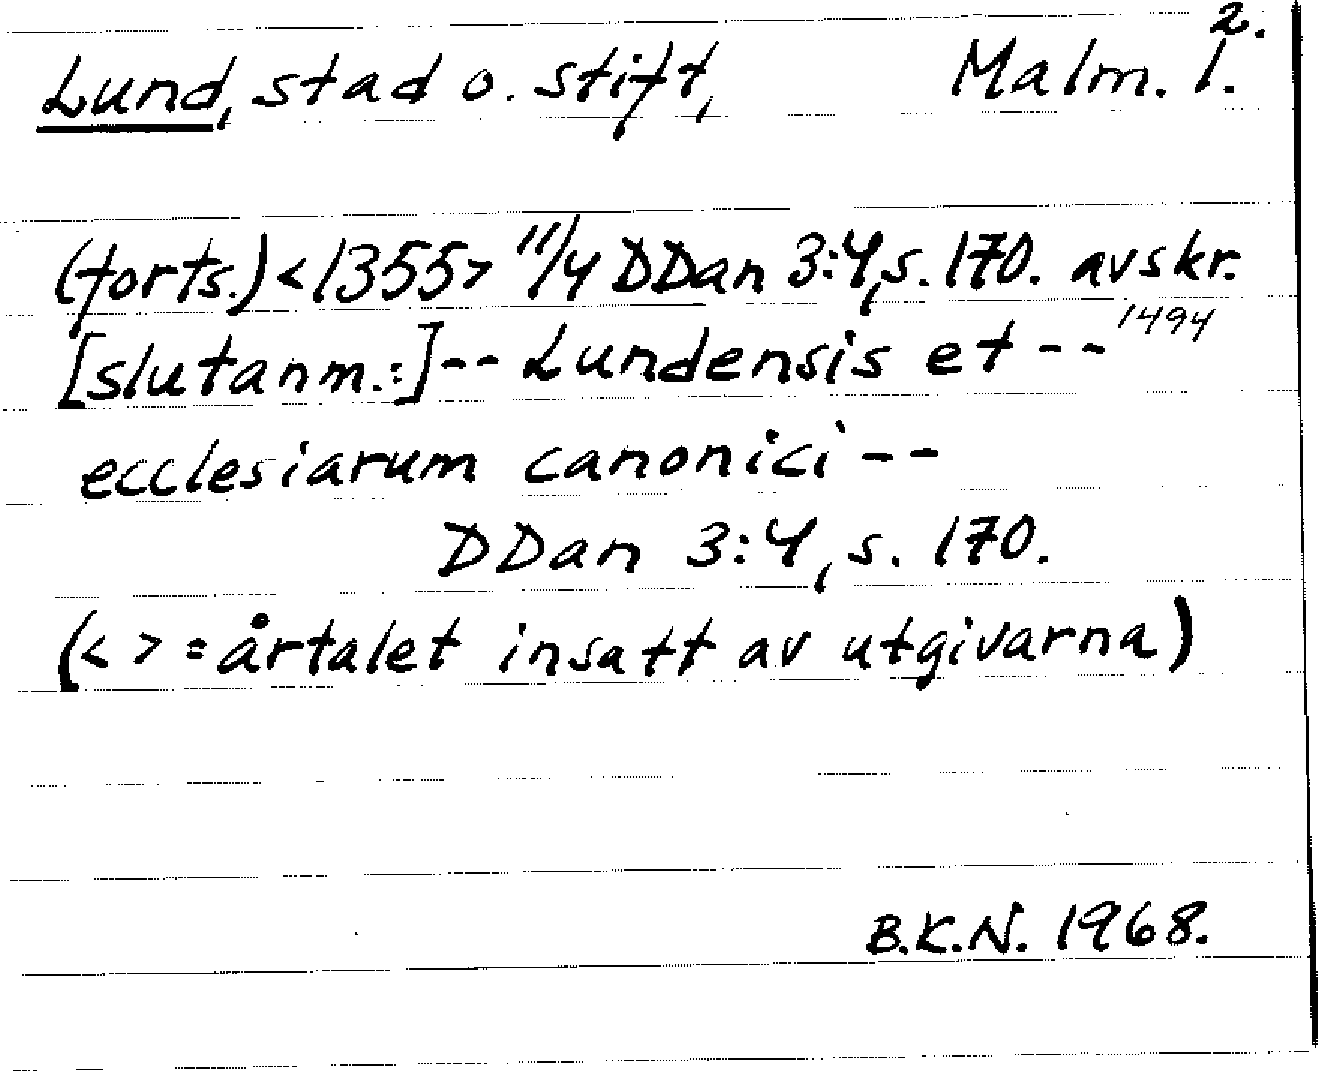 2.
Lund, stad o. stift, Malm. l.
(forts.) <1355> 11/4 DDan 3:4, s. 170. avskr.
1494
[slutanm.:] -- Lundensis et --
ecclesiarum canonici --
DDan 3:4, s. 170.
(< > = årtalet insatt av utgivarna)
B.K.N. 1968.